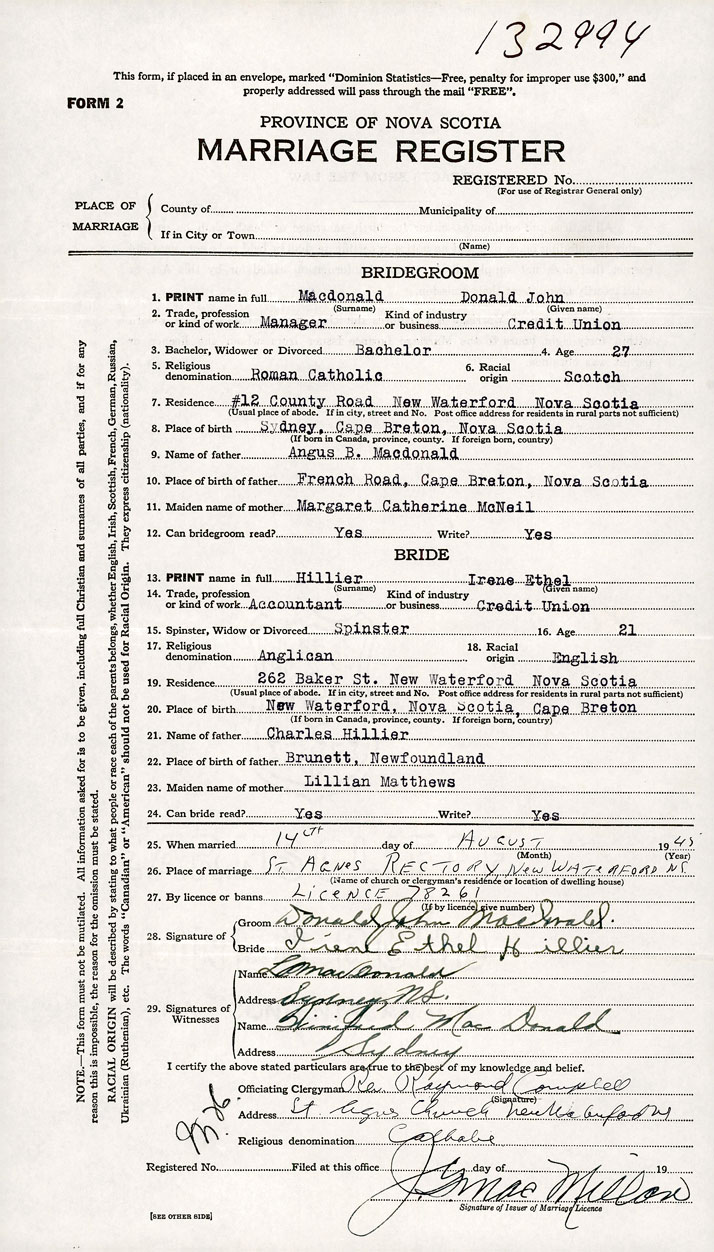 132994
This form, if placed in an envelope, marked "Dominion Statistics—Free, penalty for improper use $300," and
properly addressed will pass through the mail "FREE".
FORM 2
PROVINCE OF NOVA SCOTIA
MARRIAGE REGISTER
REGISTERED No.
(For use of Registrar General only)
PLACE OF MARRIAGE
County of Municipality of
If in City or Town
(Name)
BRIDEGROOM
1. PRINT name in full Macdonald Donald John
(Surname) (Given name)
2. Trade, profession or kind of work Manager Kind of industry or business Credit Union
3. Bachelor, Widower or Divorced Bachelor 4. Age 27
5. Religious denomination Roman Catholic 6. Racial origin Scotch
7. Residence #12 County Road New Waterford Nova Scotia
(Usual place of abode. If in city, street and No. Post office address for residents in rural parts not sufficient)
8. Place of birth Sydney, Cape Breton, Nova Scotia
(If born in Canada, province, county. If foreign born, country)
9. Name of father Angus B. Macdonald
10. Place of birth of father French Road, Cape Breton, Nova Scotia
11. Maiden name of mother Margaret Catherine McNeil
12. Can bridegroom read? Yes Write? Yes
BRIDE
13. PRINT name in full Hillier Irene Ethel
(Surname) (Given name)
14. Trade, profession or kind of work Accountant Kind of industry or business Credit Union
15. Spinster, Widow or Divorced Spinster 16. Age 21
17. Religious denomination Anglican 18. Racial origin English
19. Residence 262 Baker St. New Waterford Nova Scotia
(Usual place of abode. If in city, street and No. Post office address for residents in rural parts not sufficient)
20. Place of birth New Waterford, Nova Scotia, Cape Breton
(If born in Canada, province, county. If foreign born, country)
21. Name of father Charles Hillier
22. Place of birth of father Brunett, Newfoundland
23. Maiden name of mother Lillian Matthews
24. Can bride read? Yes Write? Yes
25. When married 14th day of August 19
(Month) (Year)
26. Place of marriage St Agnes Rectory, New Waterford NS
(Name of church or clergyman's residence or location of dwelling house)
27. By licence or banns Licence 78261
(If by licence, give number)
28. Signature of Groom Donald John MacDonald.
Bride Irene Ethel Hillier
29. Signatures of Witnesses
Name MacDonald
Address Sydney, N.S.
Name Winifred MacDonald
Address Sydney
I certify the above stated particulars are true to the best of my knowledge and belief.
Officiating Clergyman Rev Raymond Campbell
(Signature)
Address St Agnes Church New Waterford NS
Religious denomination Catholic
Registered No. Filed at this office day of 19
Signature of Issuer of Marriage Licence
[SEE OTHER SIDE]
NOTE.—This form must not be mutilated. All information asked for is to be given, including full Christian and surnames of all parties, and if for any
reason this is impossible, the reason for the omission must be stated.
RACIAL ORIGIN will be described by stating to what people or race each of the parents belongs, whether English, Irish, Scottish, French, German, Russian,
Ukrainian (Ruthenian), etc. The words "Canadian" or "American" should not be used for Racial Origin. They express citizenship (nationality).